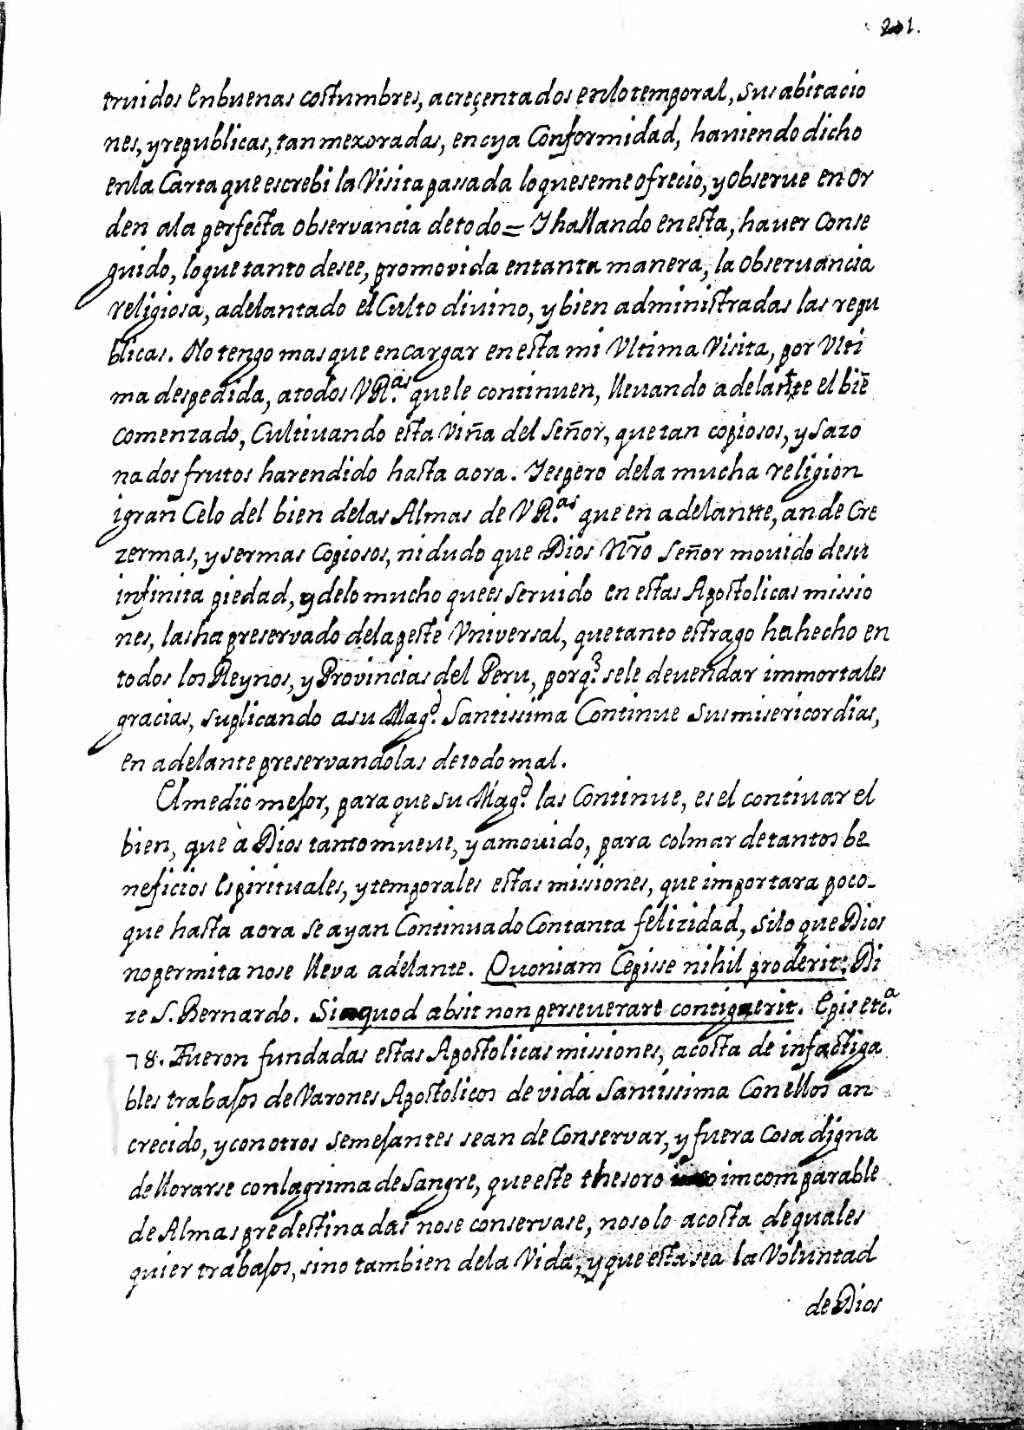 201.
truidos en buenas costumbres, acreçentados en lo temporal, sus abitacio
nes, y republicas, tan mexoradas, en cya Conformidad, haviendo dicho
en la Carta que escrebi la Visita passada lo que se me ofrecio, y observe en or
den a la perfecta observancia de todo = Y hallando en esta, haver Conse
guido, lo que tanto desee, promovida en tanta manera, la observancia
religiosa, adelantado el Culto divino, y bien administradas las repu
blicas. No tengo mas que encargar en esta mi Vltima Visita, por Vlti
ma despedida, a todos VR.as que le continuen, llevando adelante el biē
comenzado, Cultivando esta Viña del Señor, que tan copiosos, y sazo
nados frutos ha rendido hasta aora. Y espero de la mucha religion
i gran Celo del bien de las Almas de VR.as que en adelantte, an de Cre
zer mas, y ser mas Copiosos, ni dudo que Dios Nrō Señor movido de su
infinita piedad, y de lo mucho que es servido en estas Apostolicas missio
nes, las ha preservado de la peste Vniversal, que tanto estrago ha hecho en
todos los Reynos, y Provincias del Peru, porq.e se le deven dar immortales
gracias, suplicando a su Mag.d Santissima Continue sus misericordias,
en adelante preservandolas de todo mal.
El medio mejor, para que su Mag.d las Continue, es el continar el
bien, que à Dios tanto mueve, y a movido, para colmar de tantos be
neficios Espirituales, y temporales estas missiones, que importara poco-
que hasta aora se ayan Continuado Con tanta felizidad, si lo que Dios
no permita no se lleva adelante. Quoniam Cepisse nihil proderit: Di
ze S. Bernardo. Si quod absit non perseverare contigerit. Epist.a
78. Fueron fundadas estas Apostolicas missiones, a costa de infactiga
bles trabajos de Varones Apostolicos de vida Santissima Con ellos an
crecido, y con otros semejantes se an de Conservar, y fuera Cosa digna
de llorarse con lagrima de Sangre, que este thesoro imcomparable
de Almas predestinadas no se conservase, no solo a costa de quales
quier trabajos, sino tambien de la Vida, y que esta sea la Voluntad
de Dios